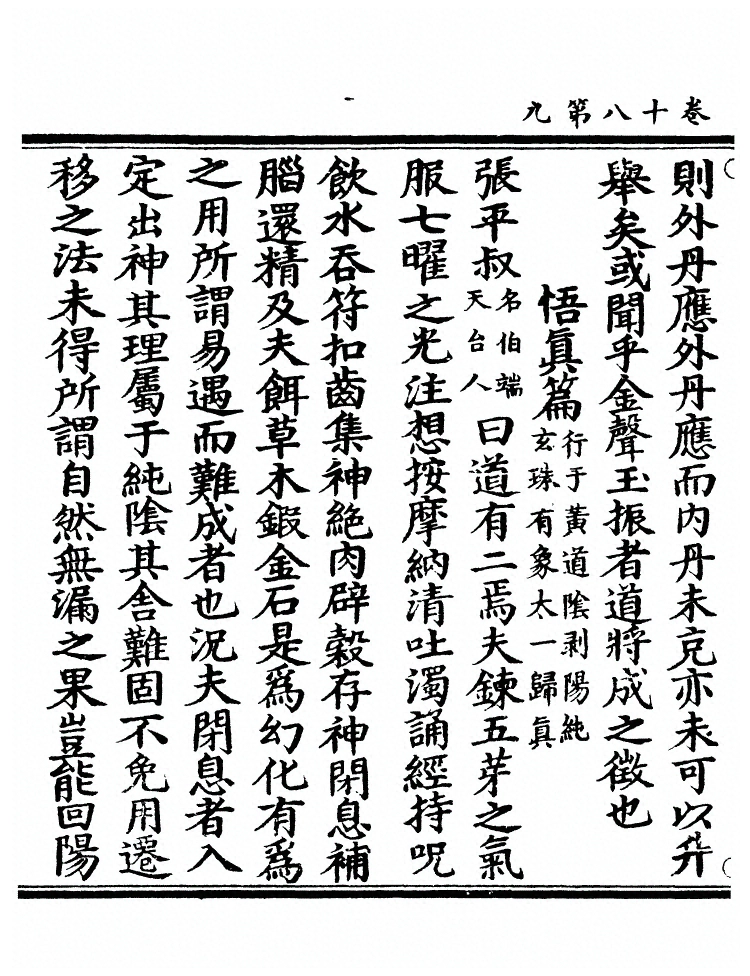 卷十八第九
則外丹應外丹應而內丹未克亦未可以升
舉矣或聞乎金聲玉振者道將成之徵也
悟眞篇行于黃道陰剥陽純
玄珠有象太一歸眞
張平叔名伯端
天台人曰道有二焉夫鍊五芽之氣
服七曜之光注想按摩納清吐濁誦經持呪
飲水吞符扣齒集神絶肉辟穀存神閉息補
腦還精及夫餌草木鍛金石是爲幻化有爲
之用所謂易遇而難成者也況夫閉息者入
定出神其理屬于純陰其舍難固不免用遷
移之法未得所謂自然無漏之果豈能回陽